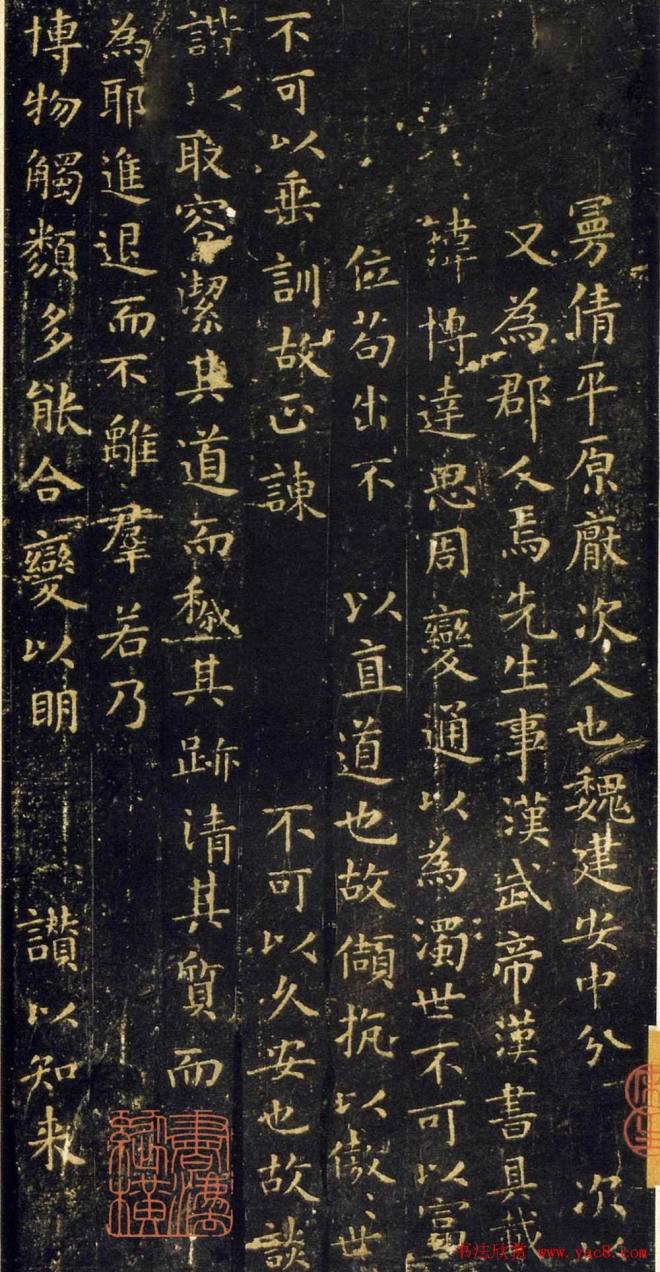 曼倩平原厭次人也魏建安中分 次以
又為郡人焉先生事漢武帝漢書具載
瑋博達思周變通以為濁世不可以富
位苟出不 以直道也故頡抗以傲〻世
不可以垂訓故正諫 不可以久安也故談
諧以取容潔其道而穢其跡清其質而
為耶進退而不離羣若乃
博物觸類多能合變以明 讃以知来
书法欣赏 www.yac8.com